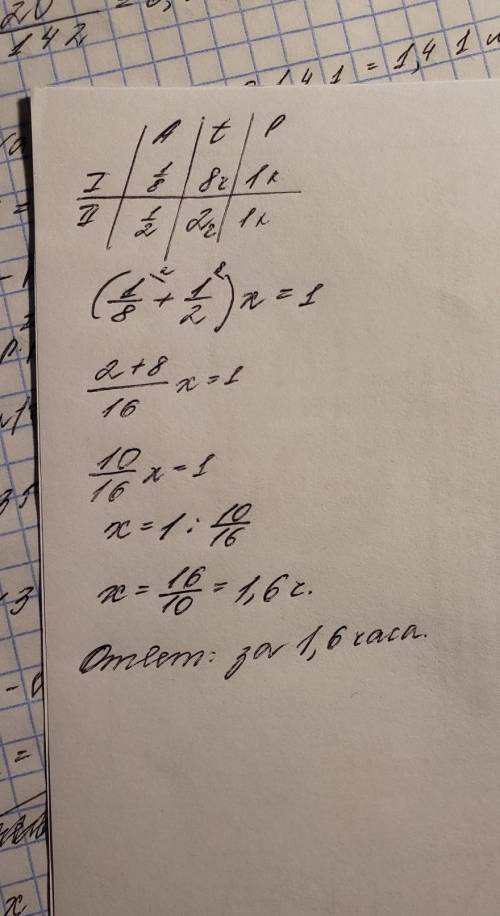 20/142
1,41 = 1,41
A | t | P
I | 1/8 | 8ч | 1к
II | 1/2 | 2ч | 1к
(1/8 + 1/2) x = 1
2+8/16 x = 1
10/16 x = 1
x = 1 : 10/16
x = 16/10 = 1,6 ч.
Ответ: за 1,6 часа.
x